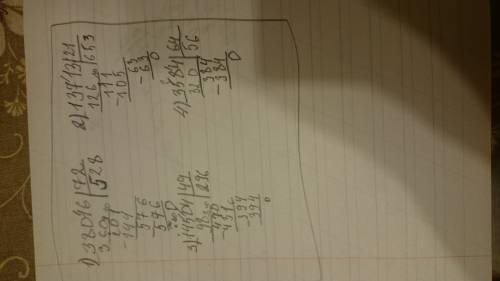 1) 38016 | 72
360 | 528
201
-144
576
576
0
2) 13713 | 21
126 | 653
111
-105
63
-63
0
3) 14504 | 49
98 | 296
470
-441
294
-294
0
4) 3584 | 64
320 | 56
384
-384
0